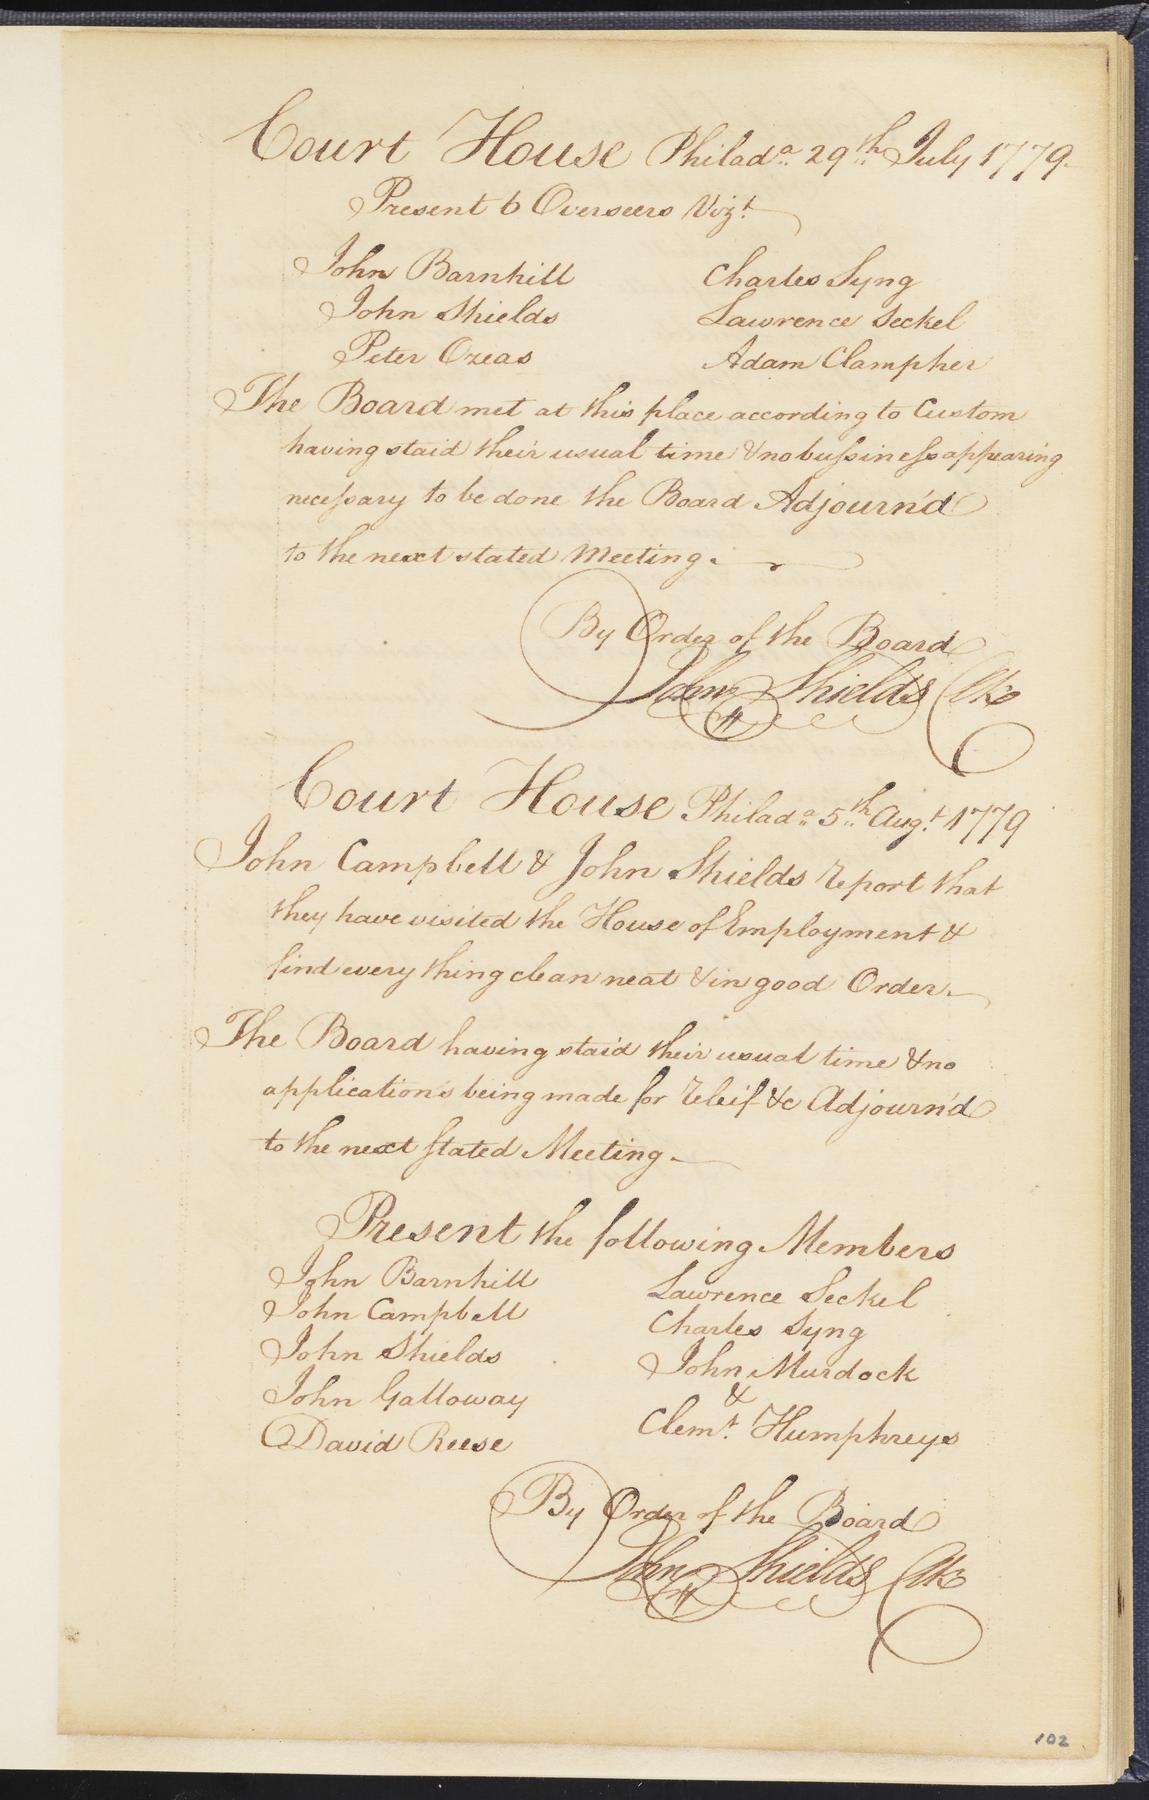 Court House Philada 29th July 1779
Present 6 Overseers Vizt
John Barnhill Charles Syng
John Shields Lawrence Seckel
Peter Ozeas Adam Clampher
The Board met at this place according to Custom
having staid their usual time & no bussiness appearing
necessary to be done the Board Adjourn'd
to the next stated Meeting.
By Order of the Board
John Shields Clk
Court House Philada 5th Augt 1779
John Campbell & John Shields report that
they have visited the House of Employment &
find every thing clean neat & in good Order.
The Board having staid their usual time & no
applications being made for releif &c Adjourn'd
to the next stated Meeting.
Present the following Members
John Barnhill Lawrence Seckel
John Campbell Charles Syng
John Shields John Murdock
John Galloway &
David Reese Clemt Humphreys
By Order of the Board
John Shields Clk
102